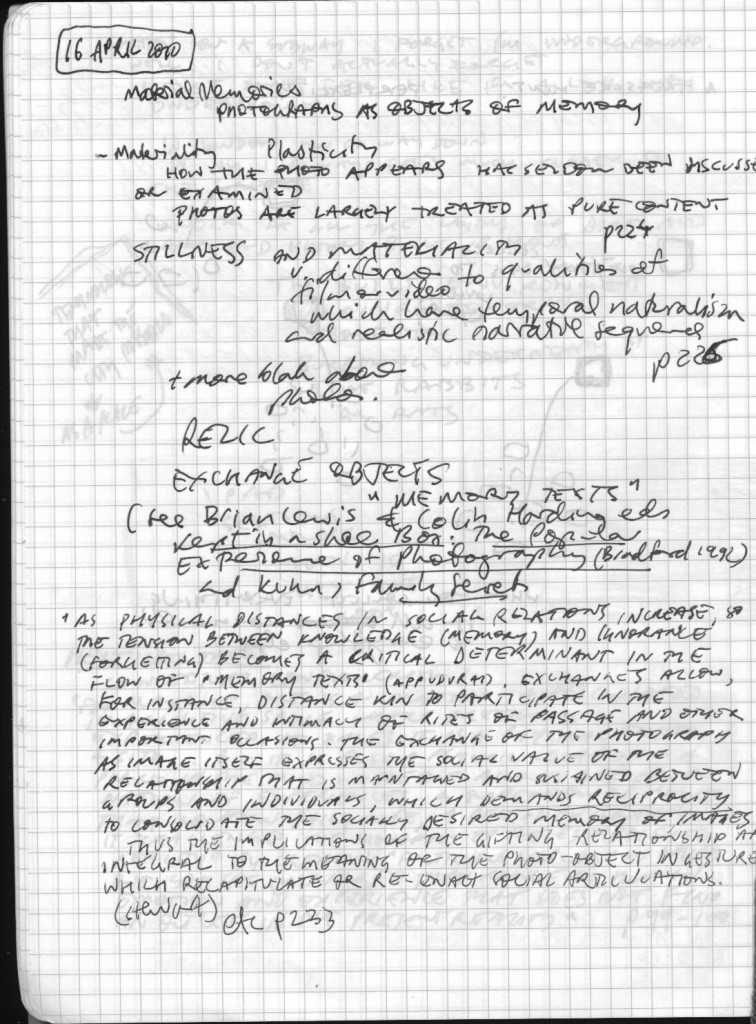 16 APRIL 2010
Material Memories
PHOTOGRAPHS AS OBJECTS OF MEMORY
- Materiality Plasticity
HOW THE PHOTO APPEARS HAS SELDOM BEEN DISCUSSE
OR EXAMINED
PHOTOS ARE LARGELY TREATED AS PURE CONTENT
p224
STILLNESS AND MATERIALISM
v. different to qualities of
film or video
which have temporal naturalism
and realistic narrative sequence
p226
+ more blah about
photos.
RELIC
EXCHANGE OBJECTS
"MEMORY TEXTS"
(see Brian Lewis & Colin Harding eds
Kept in a Shoe Box: The Popular
Experience of Photography (Bradford 1992)
and Kuhn, Family Secrets
"AS PHYSICAL DISTANCES IN SOCIAL RELATIONS INCREASE, SO
THE TENSION BETWEEN KNOWLEDGE (MEMORY) AND IGNORANCE
(FORGETTING) BECOMES A CRITICAL DETERMINANT IN THE
FLOW OF "MEMORY TEXTS" (APPUDURAI). EXCHANGES ALLOW,
FOR INSTANCE, DISTANCE KIN TO PARTICIPATE IN THE
EXPERIENCE AND INTIMACY OF RITES OF PASSAGE AND OTHER
IMPORTANT OCCASIONS. THE EXCHANGE OF THE PHOTOGRAPH
AS IMAGE ITSELF EXPRESSES THE SOCIAL VALUE OF THE
RELATIONSHIP THAT IS MAINTAINED AND SUSTAINED BETWEEN
GROUPS AND INDIVIDUALS, WHICH DEMANDS RECIPROCITY
TO CONSOLIDATE THE SOCIALLY DESIRED MEMORY OF IMAGES
THUS THE IMPLICATIONS OF THE GIFTING RELATIONSHIP AR
INTEGRAL TO THE MEANING OF THE PHOTO-OBJECT IN GESTURE
WHICH RECAPITULATE OR RE-ENACT SOCIAL ARTICULATIONS.
etc p233